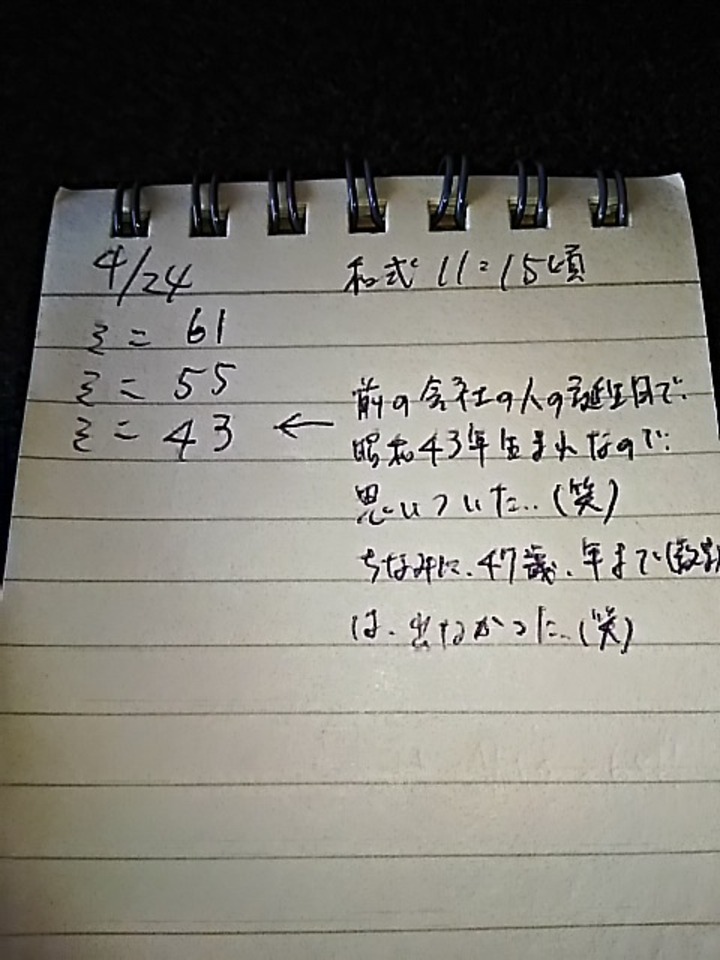 4/24 和式 11:15頃
ミニ 61
ミニ 55
ミニ 43 ← 前の会社の人の誕生日で.
昭和43年生まれなので.
思いついた..(笑)
ちなみに、47歳、年まで(数字)
は、出なかった..(笑)